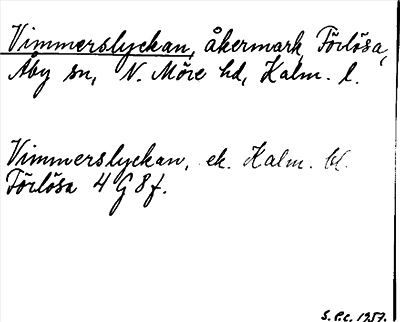 Vimmerslyckan, åkermark, Förlösa,
Åby sn, N. Möre hd, Kalm. l.
Vimmerslyckan, ek. Kalm. bl.
Förlösa 4 G 8 f.
S.P.C. 1957.